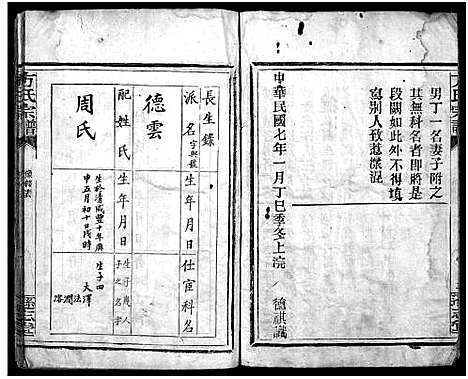 男丁一名妻子附之
其無科名者即將是
段闕如此外不得填
寫別人致愆溷混
中華民國七年一月丁巳季冬上浣 德祺識
長生錄
派名字與號 生年月日 仕宦科名
德雲
配姓氏 生年月日 生子幾人子之名字
周氏
生於清咸豐十年庚
申五月初十日戌時
生子四
大澤
方氏宗譜